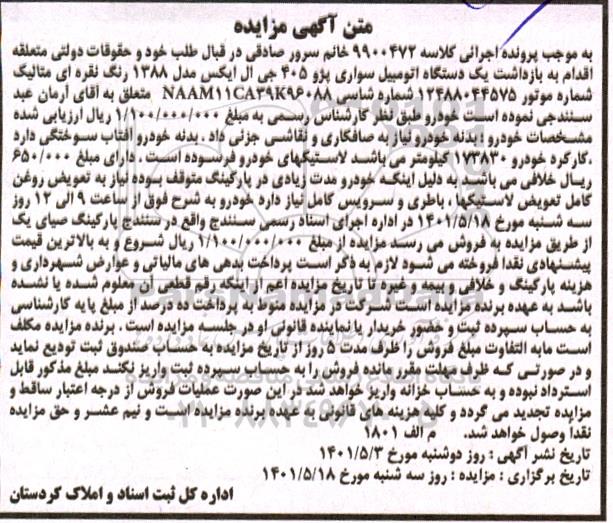 متن آگهی مزایده
به موجب پرونده اجرائی کلاسه ۹۹۰۰۴۷۲ خانم سرور صادقی در قبال طلب خود و حقوقات دولتی متعلقه
اقدام به بازداشت یک دستگاه اتومبیل سواری پژو ۴۰۵ جی ال ایکس مدل ۱۳۸۸ رنگ نقره ای متالیک
شماره موتور ۱۲۴۸۸۰۴۴۵۷۵ شماره شاسی NAAM11CA39K96088 متعلق به آقای آرمان عبد
سنندجی نموده است خودرو طبق نظر کارشناس رسمی به مبلغ ۱/۱۰۰/۰۰۰/۰۰۰ ریال ارزیابی شده
مشخصات خودرو : بدنه خودرو نیاز به صافکاری و نقاشی جزئی داد . بدنه خودرو آفتاب سوختگی دارد
،کارکرد خودرو ۱۷۳۸۳۰ کیلومتر می باشد لاستیکهای خودرو فرسوده است . دارای مبلغ ۶۵۰/۰۰۰
ریال خلافی می باشد. به دلیل اینکه خودرو مدت زیادی در پارکینگ متوقف بوده نیاز به تعویض روغن
کامل تعویض لاستیکها، باطری و سرویس کامل نیاز دارد خودرو به شرح فوق از ساعت ۹ الی ۱۲ روز
سه شنبه مورخ ۱۴۰۱/۵/۱۸ در اداره اجرای اسناد رسمی سنندج واقع در سنندج پارکینگ صبای یک
از طریق مزایده به فروش می رسد مزایده از مبلغ ۱/۱۰۰/۰۰۰/۰۰۰ ریال شروع و به بالاترین قیمت
پیشنهادی نقدا فروخته می شود لازم به ذکر است پرداخت بدهی های مالیاتی و عوارض شهرداری و
هزینه پارکینگ و خلافی و بیمه و غیره تا تاریخ مزایده اعم از اینکه رقم قطعی آن معلوم شده یا نشده
باشد به عهده برنده مزایده است شرکت در مزایده منوط به پرداخت ده درصد از مبلغ پایه کارشناسی
به حساب سپرده ثبت و حضور خریدار یا نماینده قانونی او در جلسه مزایده است . برنده مزایده مکلف
است مابه التفاوت مبلغ فروش را ظرف مدت ۵ روز از تاریخ مزایده به حساب صندوق ثبت تودیع نماید
و در صورتی که ظرف مهلت مقرر مانده فروش را به حساب سپرده ثبت واریز نکنند مبلغ مذکور قابل
استرداد نبوده و به حساب خزانه واریز خواهد شد در این صورت عملیات فروش از درجه اعتبار ساقط و
مزایده تجدید می گردد و کلیه هزینه های قانونی به عهده برنده مزایده است و نیم عشر و حق مزایده
نقدا وصول خواهد شد. م الف ۱۸۰۱
تاریخ نشر آگهی : روز دوشنبه مورخ ۱۴۰۱/۵/۳
تاریخ برگزاری : مزایده : روز سه شنبه مورخ ۱۴۰۱/۵/۱۸
اداره کل ثبت اسناد و املاک کردستان